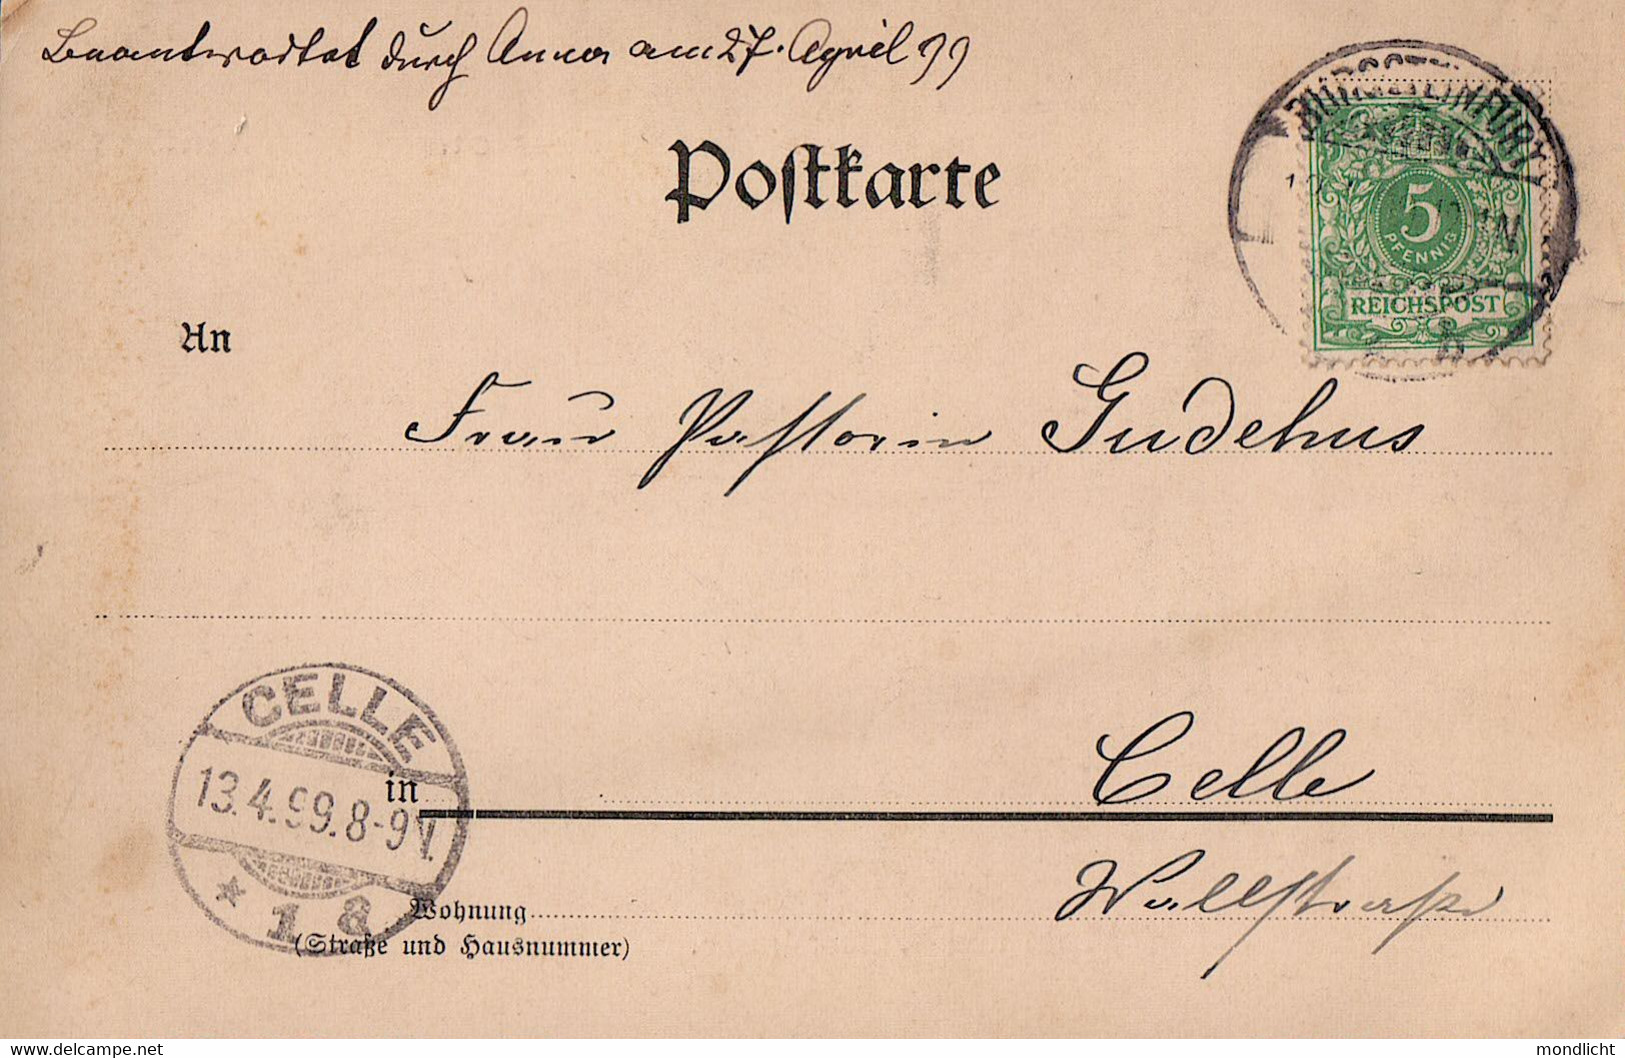 Beantwortet durch Anna am 27. April 99
Postkarte
BURGSTEINFURT
5
PFENNIG
REICHSPOST
An
Frau Pastorin Gudehus
CELLE
13.4.99.8-9V.
* 1 a
in
Celle
Wohnung
Wallstraße
(Straße und Hausnummer)
delcampe.net
mondlicht